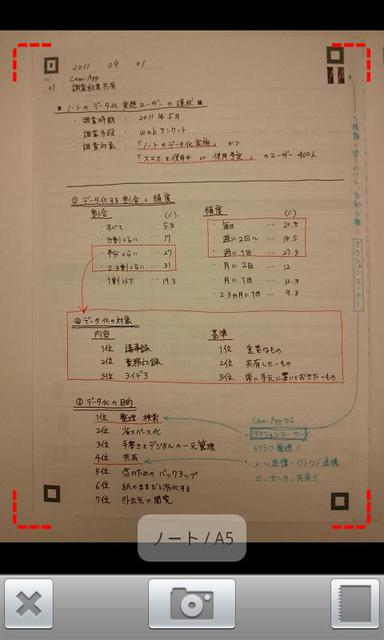 2011 09 01
01 CamiApp
調査結果共有
■ ノートのデータ化実態ユーザーの現状 ■
・調査時期 : 2011年5月
・調査手段 : Webアンケート
・調査対象 「ノートのデータ化実施」かつ
「スマホを使用中 or 使用予定」のユーザー 400人
① データ化する割合と頻度
割合 (%) 頻度 (%)
・すべて … 5.8 ・毎日 … 20.8
・8割くらい … 17 ・週に2日〜 … 18.5
・半分くらい … 27 ・週に1日 … 27.3
・2-3割くらい … 31 ・月に2日 … 12
・1割以下 … 19.3 ・月に1日 … 12.3
・2-3カ月に1日 … 9.3
② データ化の対象
内容 基準
1位 議事録 1位 重要なもの
2位 業務記録 2位 共有したいもの
3位 アイデア 3位 常に手元に置いておきたいもの
③ データ化の目的
1位 整理・検索
2位 省スペース化
3位 手書きとデジタルの一元管理
4位 共有
5位 念のためのバックアップ
6位 紙のままだと劣化する
7位 外出先で閲覧
CamiAppなら
「アクションマーカー」で
ラクラク管理!
メール送信・クラウド送信
で、カンタン共有!!
ノート / A5